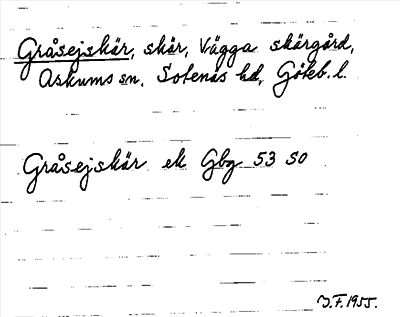 Gråsejskär, skär, Vägga skärgård,
Askums sn. Sotenäs hd, Göteb. l.
Gråsejskär ek Gbg 53 SO
J.F. 1955.